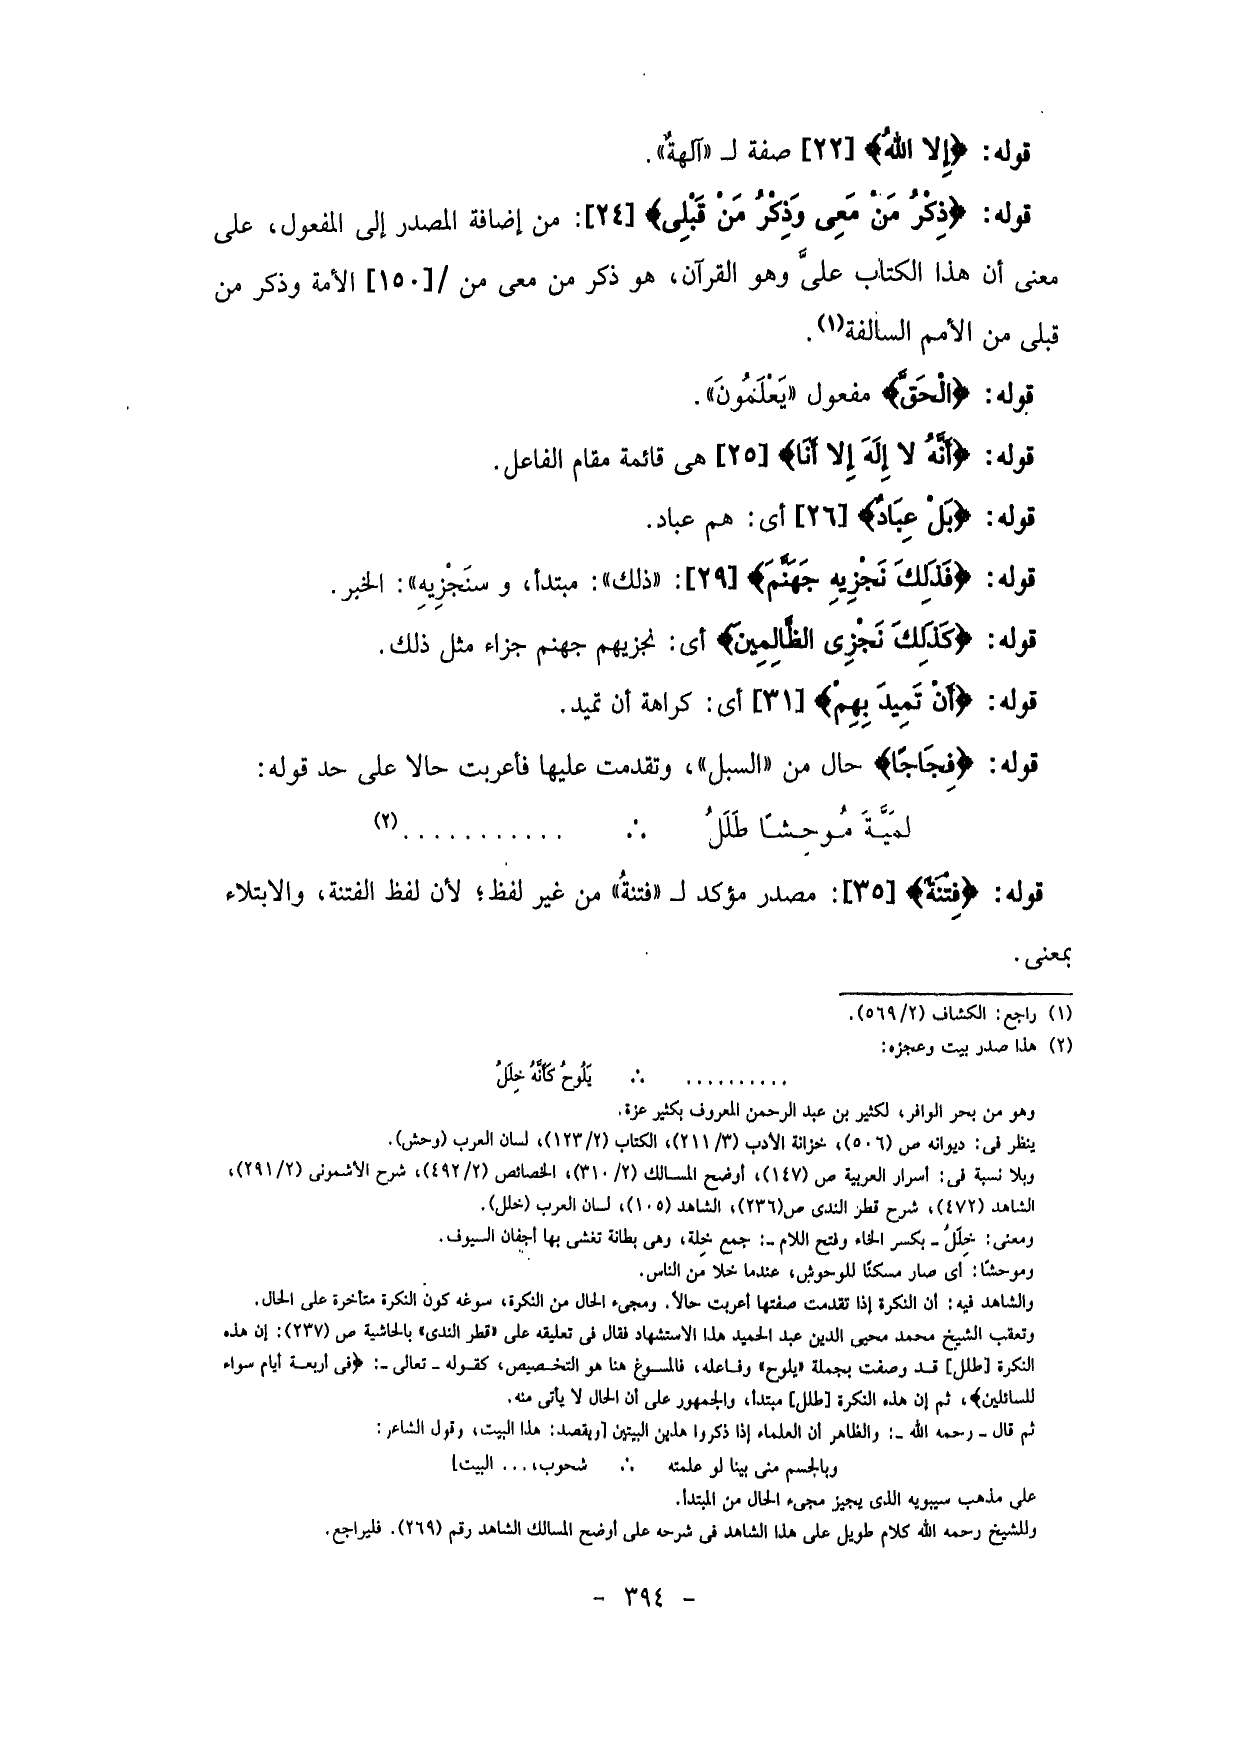 قوله: ﴿إِلا اللَّهُ﴾ [٢٢] صفة لـ «آلهةٌ».
قوله: ﴿ذِكْرُ مَنْ مَعِى وَذِكْرُ مَنْ قَبْلِى﴾ [٢٤]: من إضافة المصدر إلى المفعول، على
معنى أن هذا الكتاب علىَّ وهو القرآن، هو ذكر من معى من /[١٥٠] الأمة وذكر من
قبلى من الأمم السالفة(١).
قوله: ﴿الْحَقَّ﴾ مفعول «يَعْلَمُونَ».
قوله: ﴿أَنَّهُ لا إِلَهَ إِلا أَنَا﴾ [٢٥] هى قائمة مقام الفاعل.
قوله: ﴿بَلْ عِبَادٌ﴾ [٢٦] أى: هم عباد.
قوله: ﴿فَذَلِكَ نَجْزِيهِ جَهَنَّمَ﴾ [٢٩]: «ذلك»: مبتدأ، و سنَجْزِيهِ»: الخبر.
قوله: ﴿كَذَلِكَ نَجْزِى الظَّالِمِينَ﴾ أى: نجزيهم جهنم جزاء مثل ذلك.
قوله: ﴿أَنْ تَمِيدَ بِهِمْ﴾ [٣١] أى: كراهة أن تميد.
قوله: ﴿فِجَاجًا﴾ حال من «السبل»، وتقدمت عليها فأعربت حالا على حد قوله:
لمَيَّةَ مُوحِشًا طَلَلُ ∴ ...........(٢)
قوله: ﴿فِتْنَةً﴾ [٣٥]: مصدر مؤكد لـ «فتنةُ» من غير لفظ؛ لأن لفظ الفتنة، والابتلاء
بمعنى.
(١) راجع: الكشاف (٥٦٩/٢).
(٢) هذا صدر بيت وعجزه:
.......... ∴ يَلُوحُ كَأَنَّهُ خِلَلُ
وهو من بحر الوافر، لكثير بن عبد الرحمن المعروف بكثير عزة.
ينظر فى: ديوانه ص (٥٠٦)، خزانة الأدب (٢١١/٣)، الكتاب (١٢٣/٢)، لسان العرب (وحش).
وبلا نسبة فى: أسرار العربية ص (١٤٧)، أوضح المسالك (٣١٠/٢)، الخصائص (٤٩٢/٢)، شرح الأشمونى (٢٩١/٢)،
الشاهد (٤٧٢)، شرح قطر الندى ص(٢٣٦)، الشاهد (١٠٥)، لسان العرب (خلل).
ومعنى: خِلَلُ ـ بكسر الخاء وفتح اللام ـ: جمع خِلة، وهى بطانة تغشى بها أجفان السيوف.
وموحشًا: أى صار مسكنًا للوحوش، عندما خلا من الناس.
والشاهد فيه: أن النكرة إذا تقدمت صفتها أعربت حالاً. ومجىء الحال من النكرة، سوغه كون النكرة متأخرة على الحال.
وتعقب الشيخ محمد محيى الدين عبد الحميد هذا الاستشهاد فقال فى تعليقه على «قطر الندى» بالحاشية ص (٢٣٧): إن هذه
النكرة [طلل] قد وصفت بجملة «يلوح» وفاعله، فالمسوغ هنا هو التخصيص، كقوله ـ تعالى ـ: ﴿فى أربعة أيام سواء
للسائلين﴾، ثم إن هذه النكرة [طلل] مبتدأ، والجمهور على أن الحال لا يأتى منه.
ثم قال ـ رحمه الله ـ: والظاهر أن العلماء إذا ذكروا هذين البيتين [ويقصد: هذا البيت، وقول الشاعر:
وبالجسم منى بينا لو علمته ∴ شحوب،... البيت]
على مذهب سيبويه الذى يجيز مجىء الحال من المبتدأ.
وللشيخ رحمه الله كلام طويل على هذا الشاهد فى شرحه على أوضح المسالك الشاهد رقم (٢٦٩). فليراجع.
- ٣٩٤ -